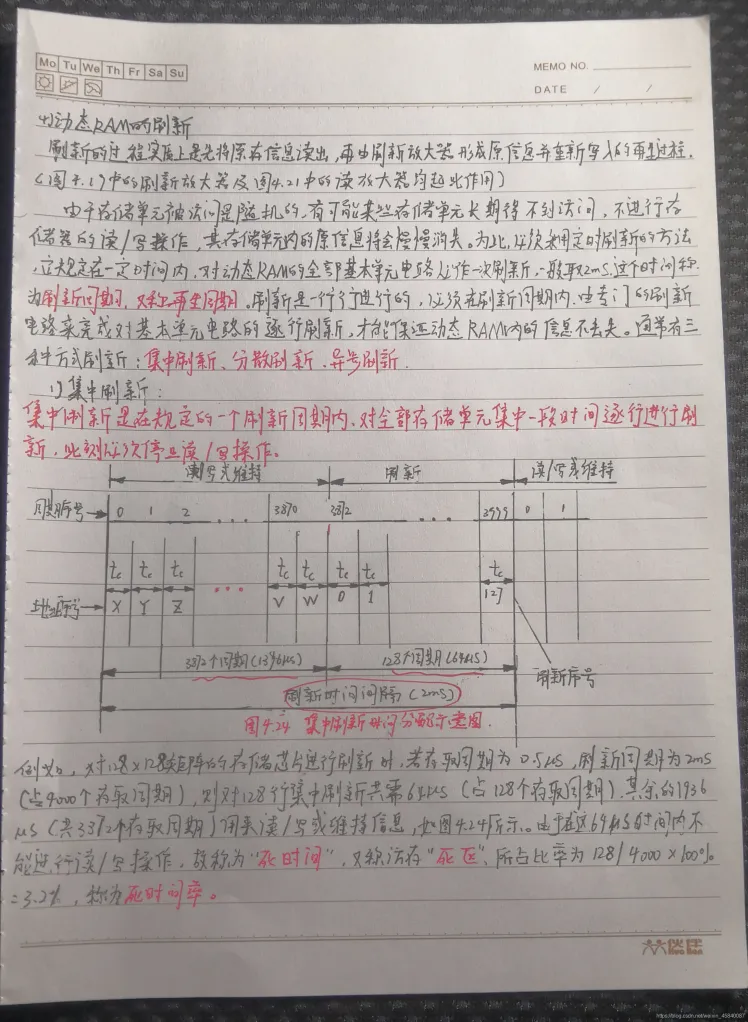 Mo Tu We Th Fr Sa Su
MEMO NO.
DATE / /
4)动态RAM的刷新
刷新的过程实际上是先将原存信息读出,再由刷新放大器形成原信息并重新写入的再生过程.
(图4.19中的刷新放大器及图4.21中的读放大器均起此作用)
由于存储单元被访问是随机的,有可能某些存储单元长期得不到访问,不进行存
储器的读/写操作,其存储单元内的原信息将会慢慢消失。为此,必须采用定时刷新的方法
,它规定在一定时间内,对动态RAM的全部基本单元电路必作一次刷新,一般取2ms,这个时间称
为刷新周期,又称上再生周期.刷新是一行行进行的,必须在刷新周期内,由专门的刷新
电路来完成对基本单元电路的逐行刷新,才能保证动态RAM内的信息不丢失。通常有三
种方式刷新:集中刷新、分散刷新、异步刷新.
1)集中刷新:
集中刷新是在规定的一个刷新周期内、对全部存储单元集中一段时间逐行进行刷
新,此刻必次停止读/写操作。
读/写或维持 刷新 读/写或维持
周期序号 0 1 2 ··· 3870 3872 ··· 3999 0 1
tc tc tc tc tc tc tc tc
地址序号 X Y Z ··· V W 0 1 127
3872个周期(1396μs) 128个周期(64μs)
刷新序号
刷新时间间隔(2ms)
图4.24 集中刷新时间分配示意图.
例如,对128×128矩阵的存储芯片进行刷新时,若存取周期为0.5μs,刷新周期为2ms
(占4000个存取周期),则对128行集中刷新共需64μs(占128个存取周期).其余的1936
μs(共3372个存取周期)用来读/写或维持信息,如图4.24所示.由于在这64μs时间内不
能进行读/写操作,故称为“死时间”,又称访存“死区”,所占比率为128/4000×100%
=3.2%,称为死时间率。
https://blog.csdn.net/weixin_45840087